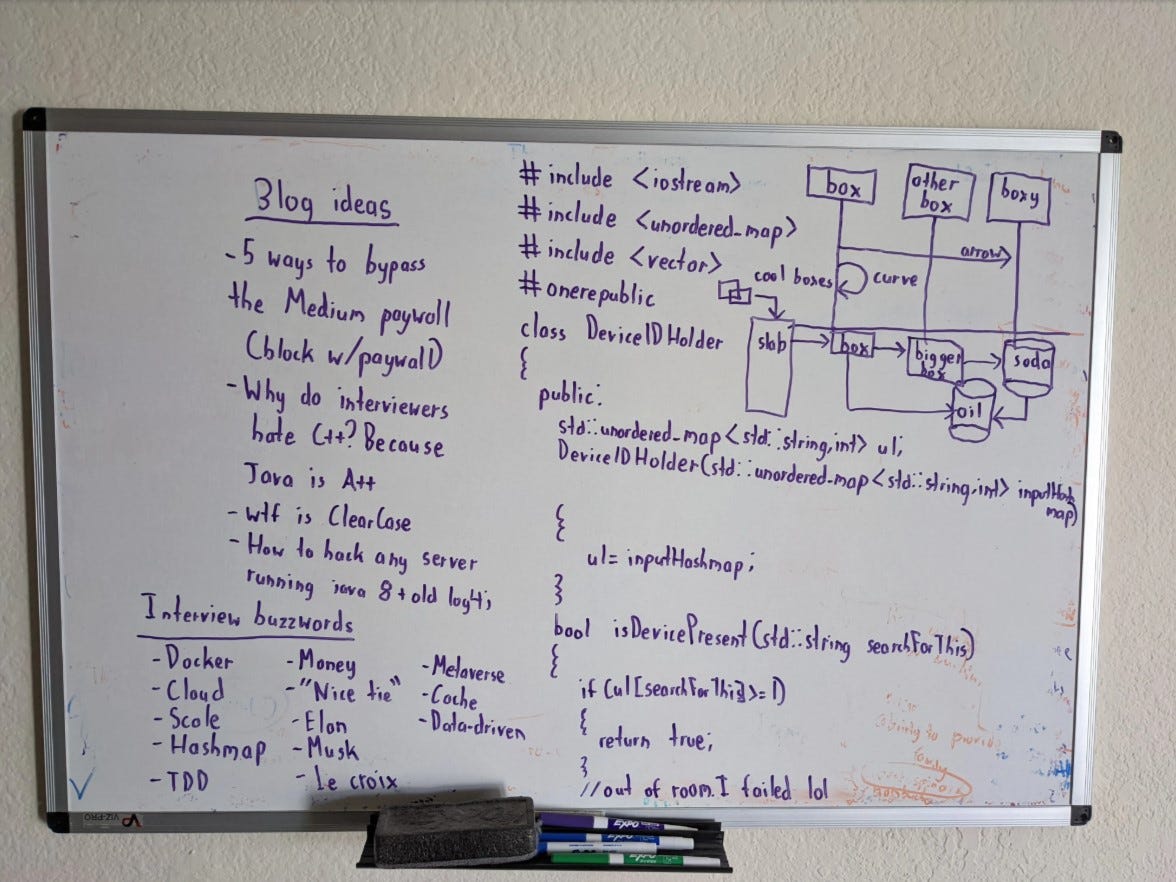 Blog ideas
- 5 ways to bypass
the Medium paywall
(block w/paywall)
- Why do interviewers
hate C++? Because
Java is A++
- wtf is ClearCase
- How to hack any server
running java 8 + old log4j
Interview buzzwords
- Docker
- Cloud
- Scale
- Hashmap
- TDD
- Money
- "Nice tie"
- Elon
- Musk
- Le croix
- Metaverse
- Cache
- Data-driven
# include <iostream>
# include <unordered_map>
# include <vector>
# onerepublic
class DeviceIDHolder
{
public:
std::unordered_map<std::string,int> ul;
DeviceIDHolder(std::unordered_map<std::string,int> inputHash
map)
{
ul= inputHashmap;
}
bool isDevicePresent(std::string searchForThis)
{
if (ul[searchForThis]>=1)
{
return true;
}
//out of room. I failed lol
box
other
box
boxy
arrow
cool boxes
curve
slab
box
bigger
box
soda
oil
VIZ-PRO
EXPO
EXPO